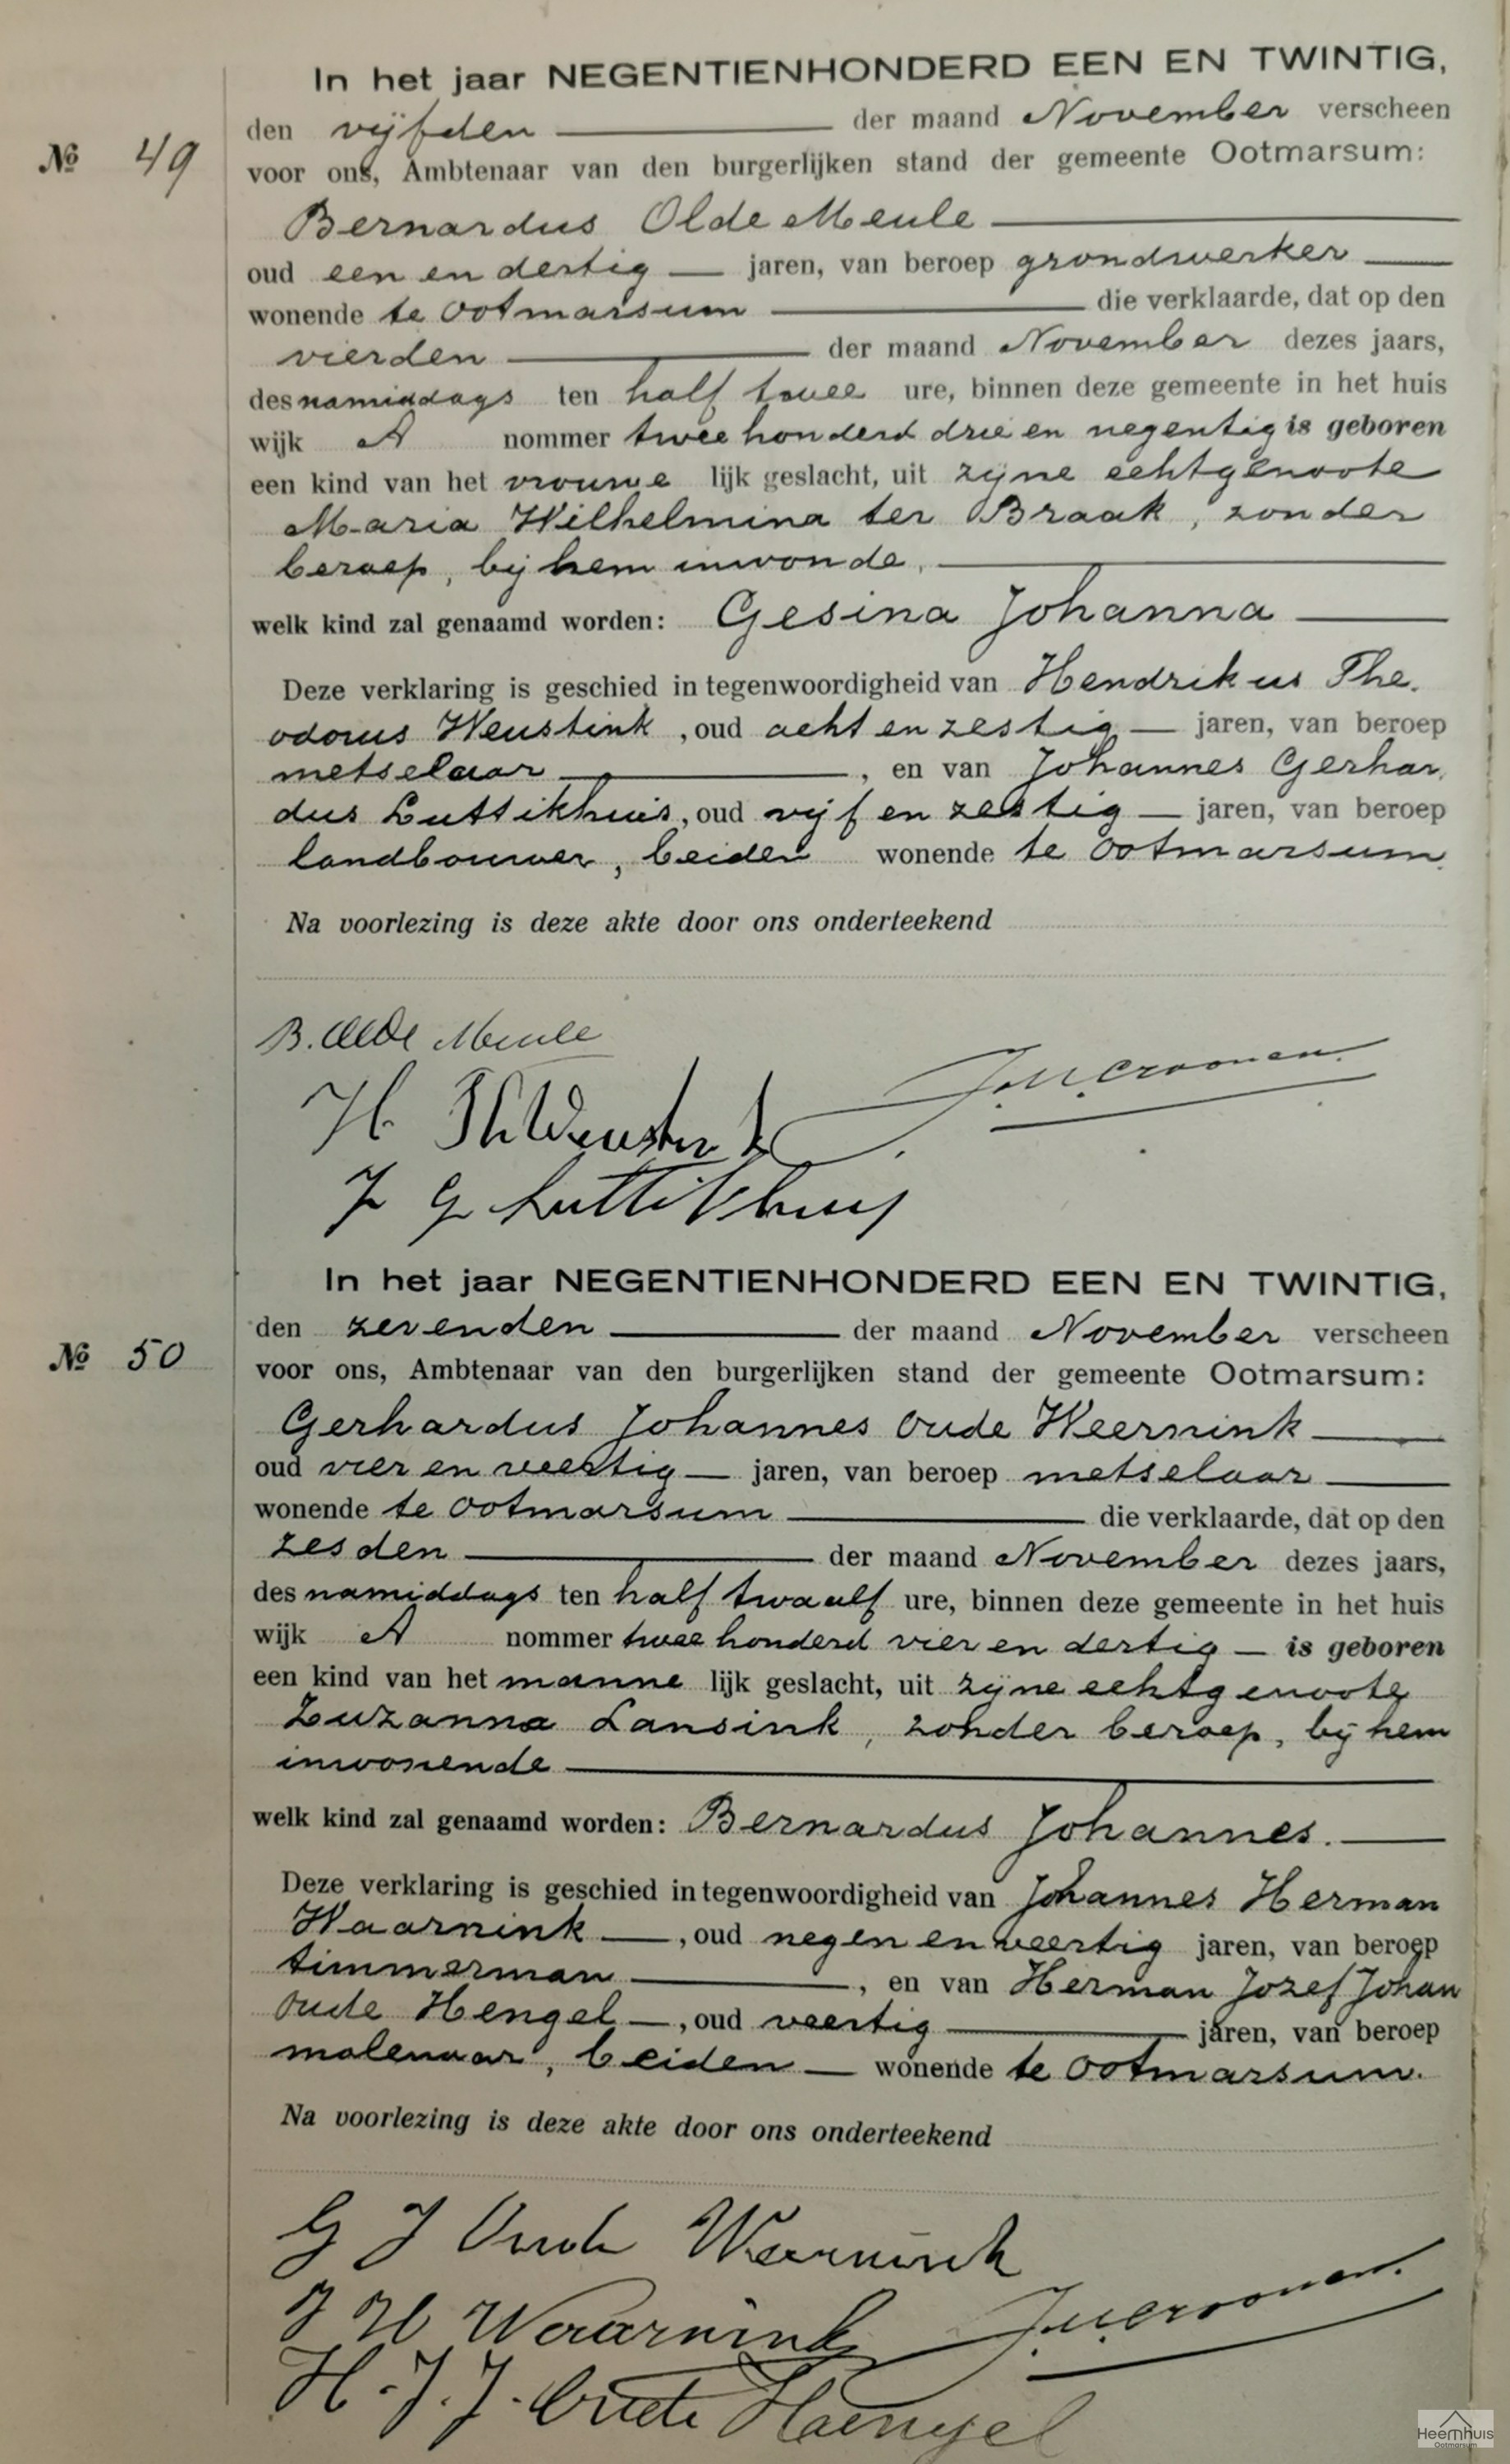 In het jaar NEGENTIENHONDERD EEN EN TWINTIG,
den vijfden der maand November verscheen
№ 49
voor ons, Ambtenaar van den burgerlijken stand der gemeente Ootmarsum:
Bernardus Olde Meule
oud een en dertig jaren, van beroep grondwerker
wonende te Ootmarsum die verklaarde, dat op den
vierden der maand November dezes jaars,
des namiddags ten half twee ure, binnen deze gemeente in het huis
wijk A nommer twee honderd drie en negentig is geboren
een kind van het vrouwe lijk geslacht, uit zijne echtgenoote
Maria Wilhelmina ter Braak, zonder
beroep, bij hem inwonde,
welk kind zal genaamd worden: Gesina Johanna
Deze verklaring is geschied in tegenwoordigheid van Hendrikus The.
odorus Weustink, oud acht en zestig jaren, van beroep
metselaar, en van Johannes Gerhar,
dus Luttikhuis, oud vijf en zestig jaren, van beroep
landbouwer, beiden wonende te Ootmarsum.
Na voorlezing is deze akte door ons onderteekend
B. Olde Meule
J.M.Croonen.
H Th Weustink
J G Luttikhuis
In het jaar NEGENTIENHONDERD EEN EN TWINTIG,
den zevenden der maand November verscheen
№ 50
voor ons, Ambtenaar van den burgerlijken stand der gemeente Ootmarsum:
Gerhardus Johannes Oude Weernink
oud vier en veertig jaren, van beroep metselaar
wonende te Ootmarsum die verklaarde, dat op den
zesden der maand November dezes jaars,
des namiddags ten half twaalf ure, binnen deze gemeente in het huis
wijk A nommer twee honderd vier en dertig is geboren
een kind van het manne lijk geslacht, uit zijne echtgenoote
Zuzanna Lansink, zonder beroep, bij hem
inwonende
welk kind zal genaamd worden: Bernardus Johannes.
Deze verklaring is geschied in tegenwoordigheid van Johannes Herman
Waarnink, oud negen en veertig jaren, van beroep
timmerman, en van Herman Jozef Johan
Oude Hengel, oud veertig jaren, van beroep
molenaar, beiden wonende te Ootmarsum.
Na voorlezing is deze akte door ons onderteekend
G J Oude Weernink
J H Waarnink
J.M.Croonen.
H. J. J. Oude Hengel
Heemhuis
Ootmarsum